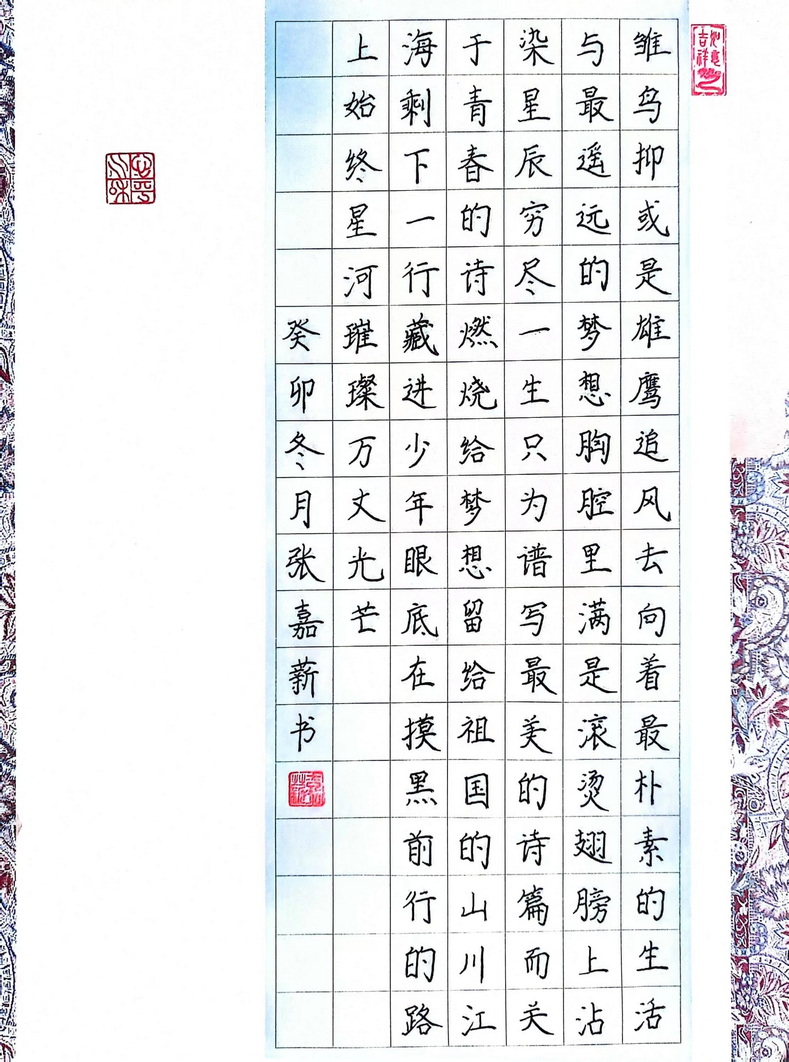 雏鸟抑或是雄鹰追风去向着最朴素的生活
与最遥远的梦想胸腔里满是滚烫翅膀上沾
染星辰穷尽一生只为谱写最美的诗篇而关
于青春的诗燃烧给梦想留给祖国的山川江
海剩下一行藏进少年眼底在摸黑前行的路
上始终星河璀璨万丈光芒
癸卯冬月张嘉薪书